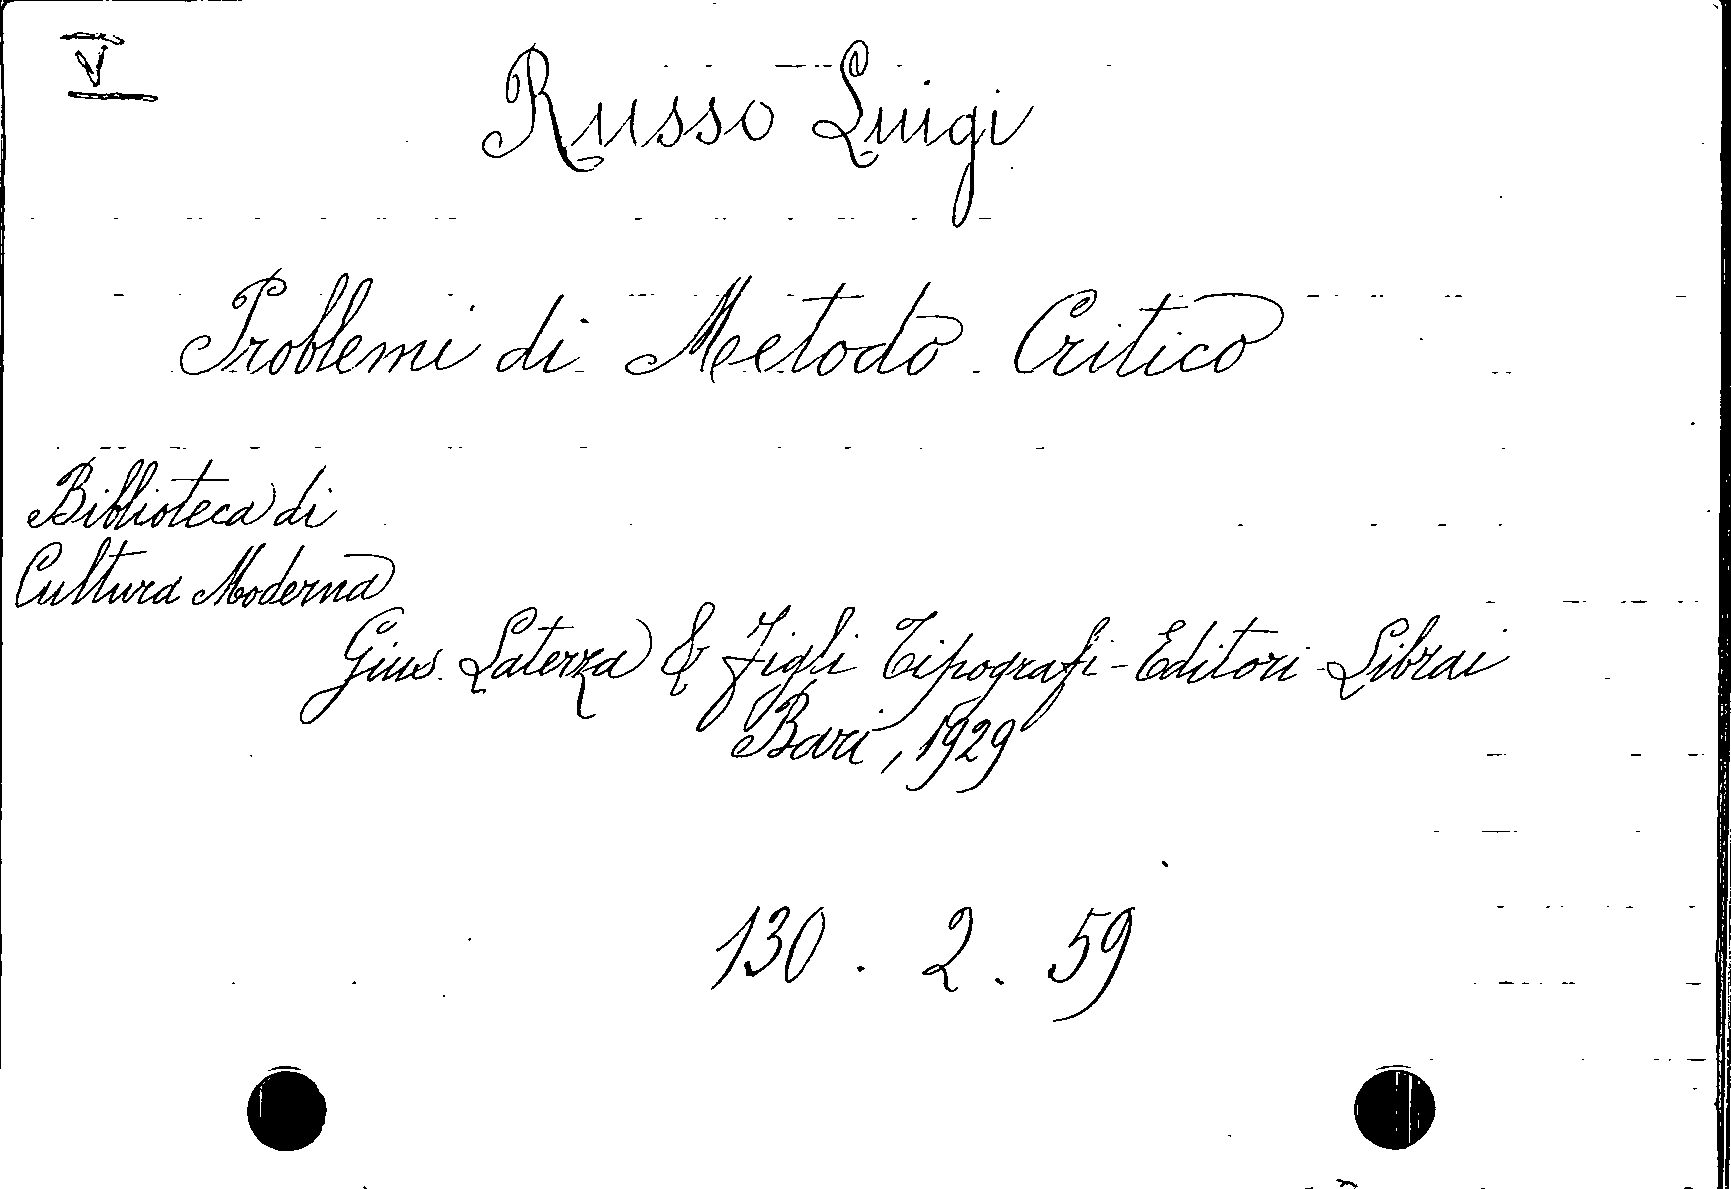 V
Russo Luigi
Problemi di Metodo Critico
Biblioteca di
Cultura Moderna
Gius. Laterza & Figli Tipografi-Editori-Librai
Bari, 1929
130. 2. 59